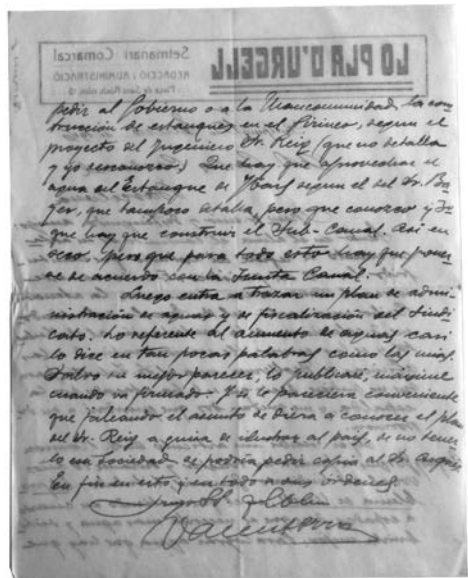 LO PLA D'URGELL
Setmanari Comarcal
REDACCIÓ I ADMINISTRACIÓ
pedir al Gobierno o a la Mancomunidad, la con
trucción de estanques en el Pirineo, segun el
proyecto del Ingeniero Sr. Reig (que no detalla
y yo desconozco.) Que hay que aprovechar el
agua del Estanque de Ibars segun el del Sr. Ba
que tampoco detalla, pero que conozco y 3º
que hay que construir el Sub-Canal. Asi en
seco, pero que para todo esto hay que poner
se de acuerdo con la Junta Canal.
Luego entra a trazar un plan de admi
nistración de aguas y de fiscalización del Sindi
cato. Lo referente al aumento de aguas casi
lo dice en tan pocas palabras como las mias.
Salvo su mejor parecer, lo publicaré, máxime
cuando va firmado. Y si le pareciera conveniente
que jaleando el asunto se diera a conocer el plan
del Sr. Reig a guisa de ilustrar al país, de no tener
lo esa Sociedad se podria pedir copia al Sr.
En fin en esto y en todo a sus órdenes